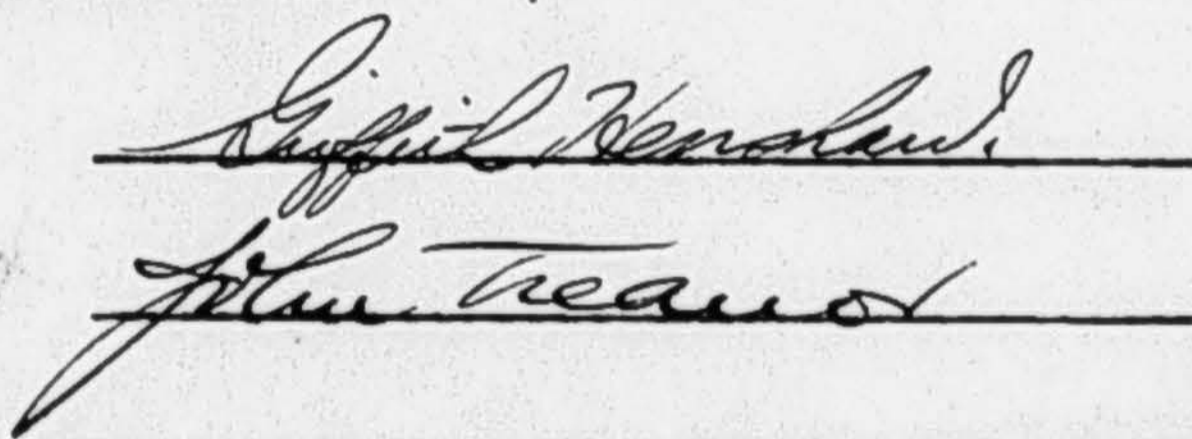 Griffith Henshaw.
John Treanor